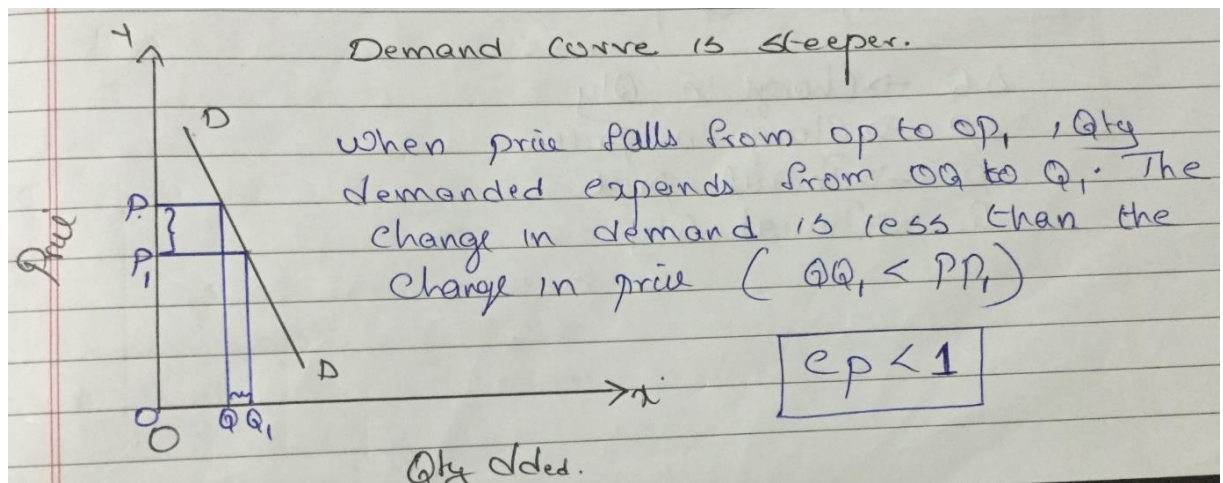 Demand curve is steeper.
When price falls from op to op₁, Qty
demanded expands from OQ to Q₁. The
change in demand is less than the
change in price ( QQ₁ < PP₁)
ep < 1
Y
D
P
P₁
Price
D
O
O
Q Q₁
x
Qty dded.